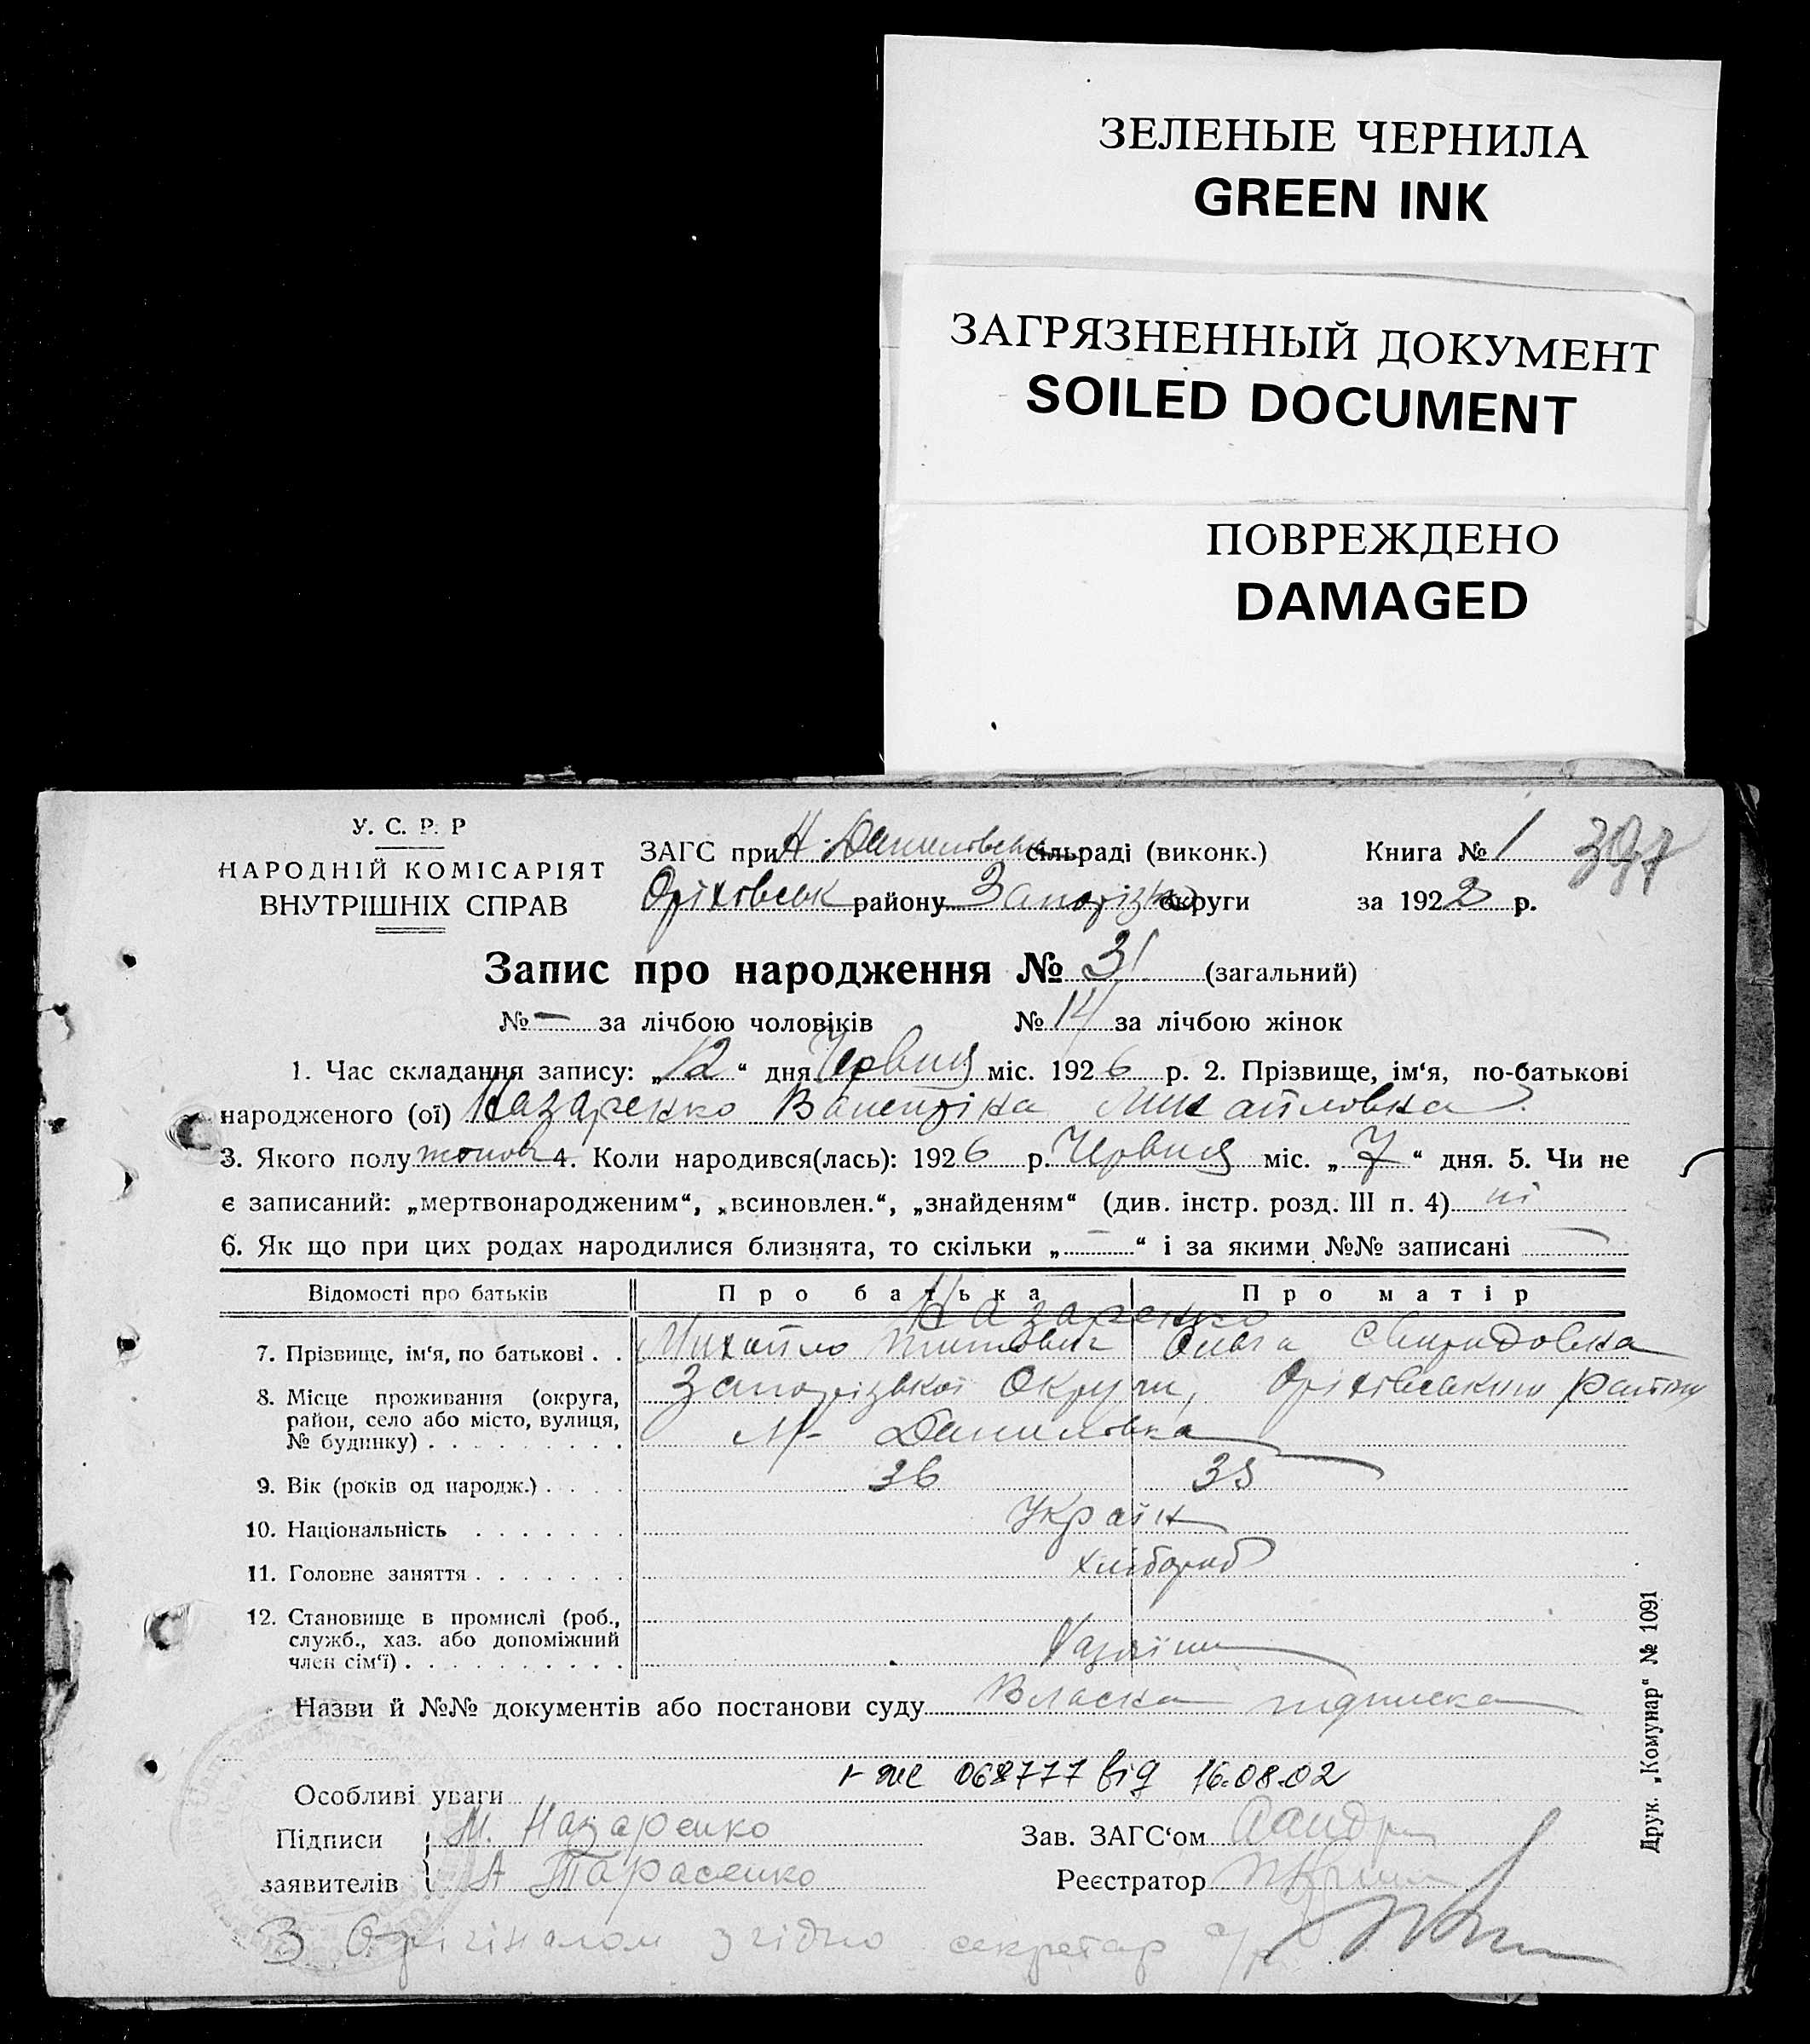 ЗЕЛЕНЫЕ ЧЕРНИЛА
GREEN INK
ЗАГРЯЗНЕННЫЙ ДОКУМЕНТ
SOILED DOCUMENT
ПОВРЕЖДЕНО
DAMAGED
У. С. Р. Р
НАРОДНІЙ КОМІСАРІЯТ
ВНУТРІШНІХ СПРАВ
ЗАГС при Н-Даниловськ сільраді (виконк.) Книга № 1 397
Оріховськ району Запорізької округи за 192 р.
Запис про народження № 31 (загальний)
№ — за лічбою чоловіків № 14 за лічбою жінок
1. Час складання запису: „12“ дня Червня міс. 1926 р. 2. Прізвище, ім'я, по-батькові
народженого (ої) Назаренко Михайловна
3. Якого полу жіноч 4. Коли народився(лась): 1926 р. Червня міс. „7“ дня. 5. Чи не
є записаний: „мертвонародженим“, „всиновлен.“, „знайденям“ (див. інстр. розд. III п. 4) ні
6. Як що при цих родах народилися близнята, то скільки „—“ і за якими №№ записані —
Відомості про батьків Про батька Про матір
Назаренко
7. Прізвище, ім'я, по батькові . . Михайло Титович Ольга Свиридовна
8. Місце проживання (округа, район, село або місто, вулиця, № будинку) . . . . . . . . . Запорізької Округи, Оріховського району
Даниловка
9. Вік (років од народж.) . . . . 36 35
10. Національність . . . . . . . Україн
11. Головне заняття . . . . . . . хлібороб
12. Становище в промислі (роб., служб., хаз. або допоміжний член сім'ї) . . . . . . . . . .
Назви й №№ документів або постанови суду Власна підписка
Особливі уваги 068777 від 16.08.02
Підписи М. Назаренко Зав. ЗАГС'ом
заявителів А Тарасенко Реєстратор
З Оригіналом згідно секретар с/р
Друк. „Комунар“ № 1091